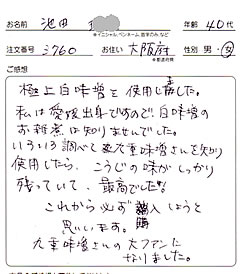 お名前 池田
※イニシャル、ペンネーム、匿名のみ、など
年齢 40代
注文番号 3760
お住い 大阪府
※都道府県
性別 男・女
ご感想
極上白味噌を使用しました。
私は愛媛出身ですので、白味噌の
お雑煮は知りませんでした。
いろいろ調べて九重味噌さんを知り
使用したら、こうじの味がしっかり
残っていて、最高でした!!
これから必ず購入しようと
思います。
九重味噌さんの大ファンに
なりました。